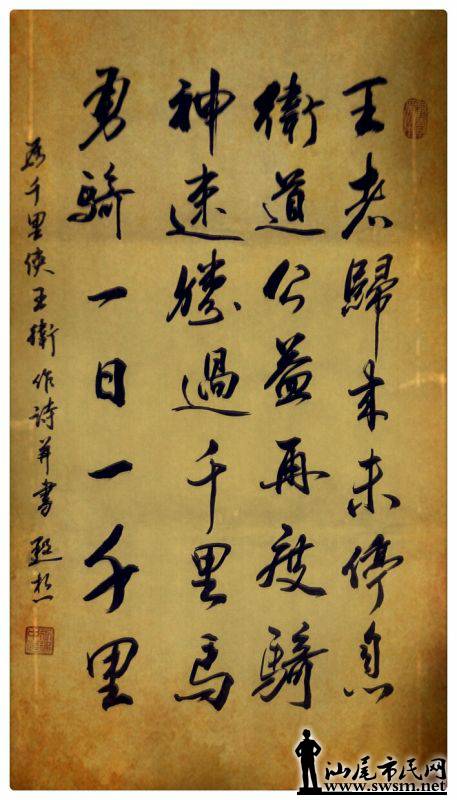 王者歸来未停息
衛道公益再度騎
神速勝過千里馬
勇騎一日一千里
为千里俠王衛作詩并書
汕尾市民网
www.swsm.net